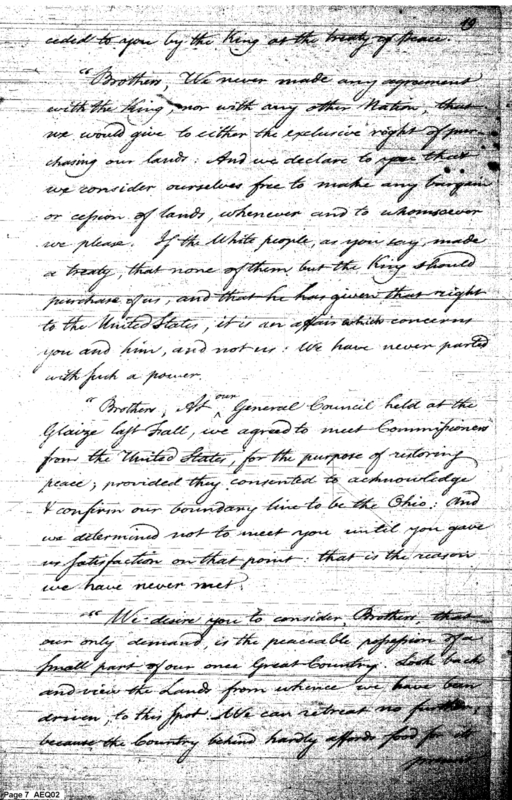 19
ceded to you by the King at the treaty of peace.
"Brothers, We never made any agreement
with the King, nor with any other Nation, that
we would give to either the exclusive right of pur-
chasing our lands: And we declare to you that
we consider ourselves free to make any bargain
or cession of lands, whenever and to whomsoever
we please. If the White people, as you say, made
a treaty, that none of them but the King should
purchase of us, and that he has given that right
to the United States, it is an affair which concerns
you and him, and not us: We have never parted
with such a power.
"Brothers, At our General Council held at the
Glaize last Fall, we agreed to meet Commissioners
from the United States, for the purpose of restoring
peace; provided they consented to acknowledge
& confirm our boundary line to be the Ohio: And
we determined not to meet you until you gave
us satisfaction on that point: that is the reason
we have never met.
"We desire you to consider, Brothers, that
our only demand, is the peaceable possession of a
small part of our once Great Country. Look back
and view the Lands from whence we have been
driven, to this spot. We can retreat no further,
because the Country behind hardly affords food for its
present
Page 7 AEQ02